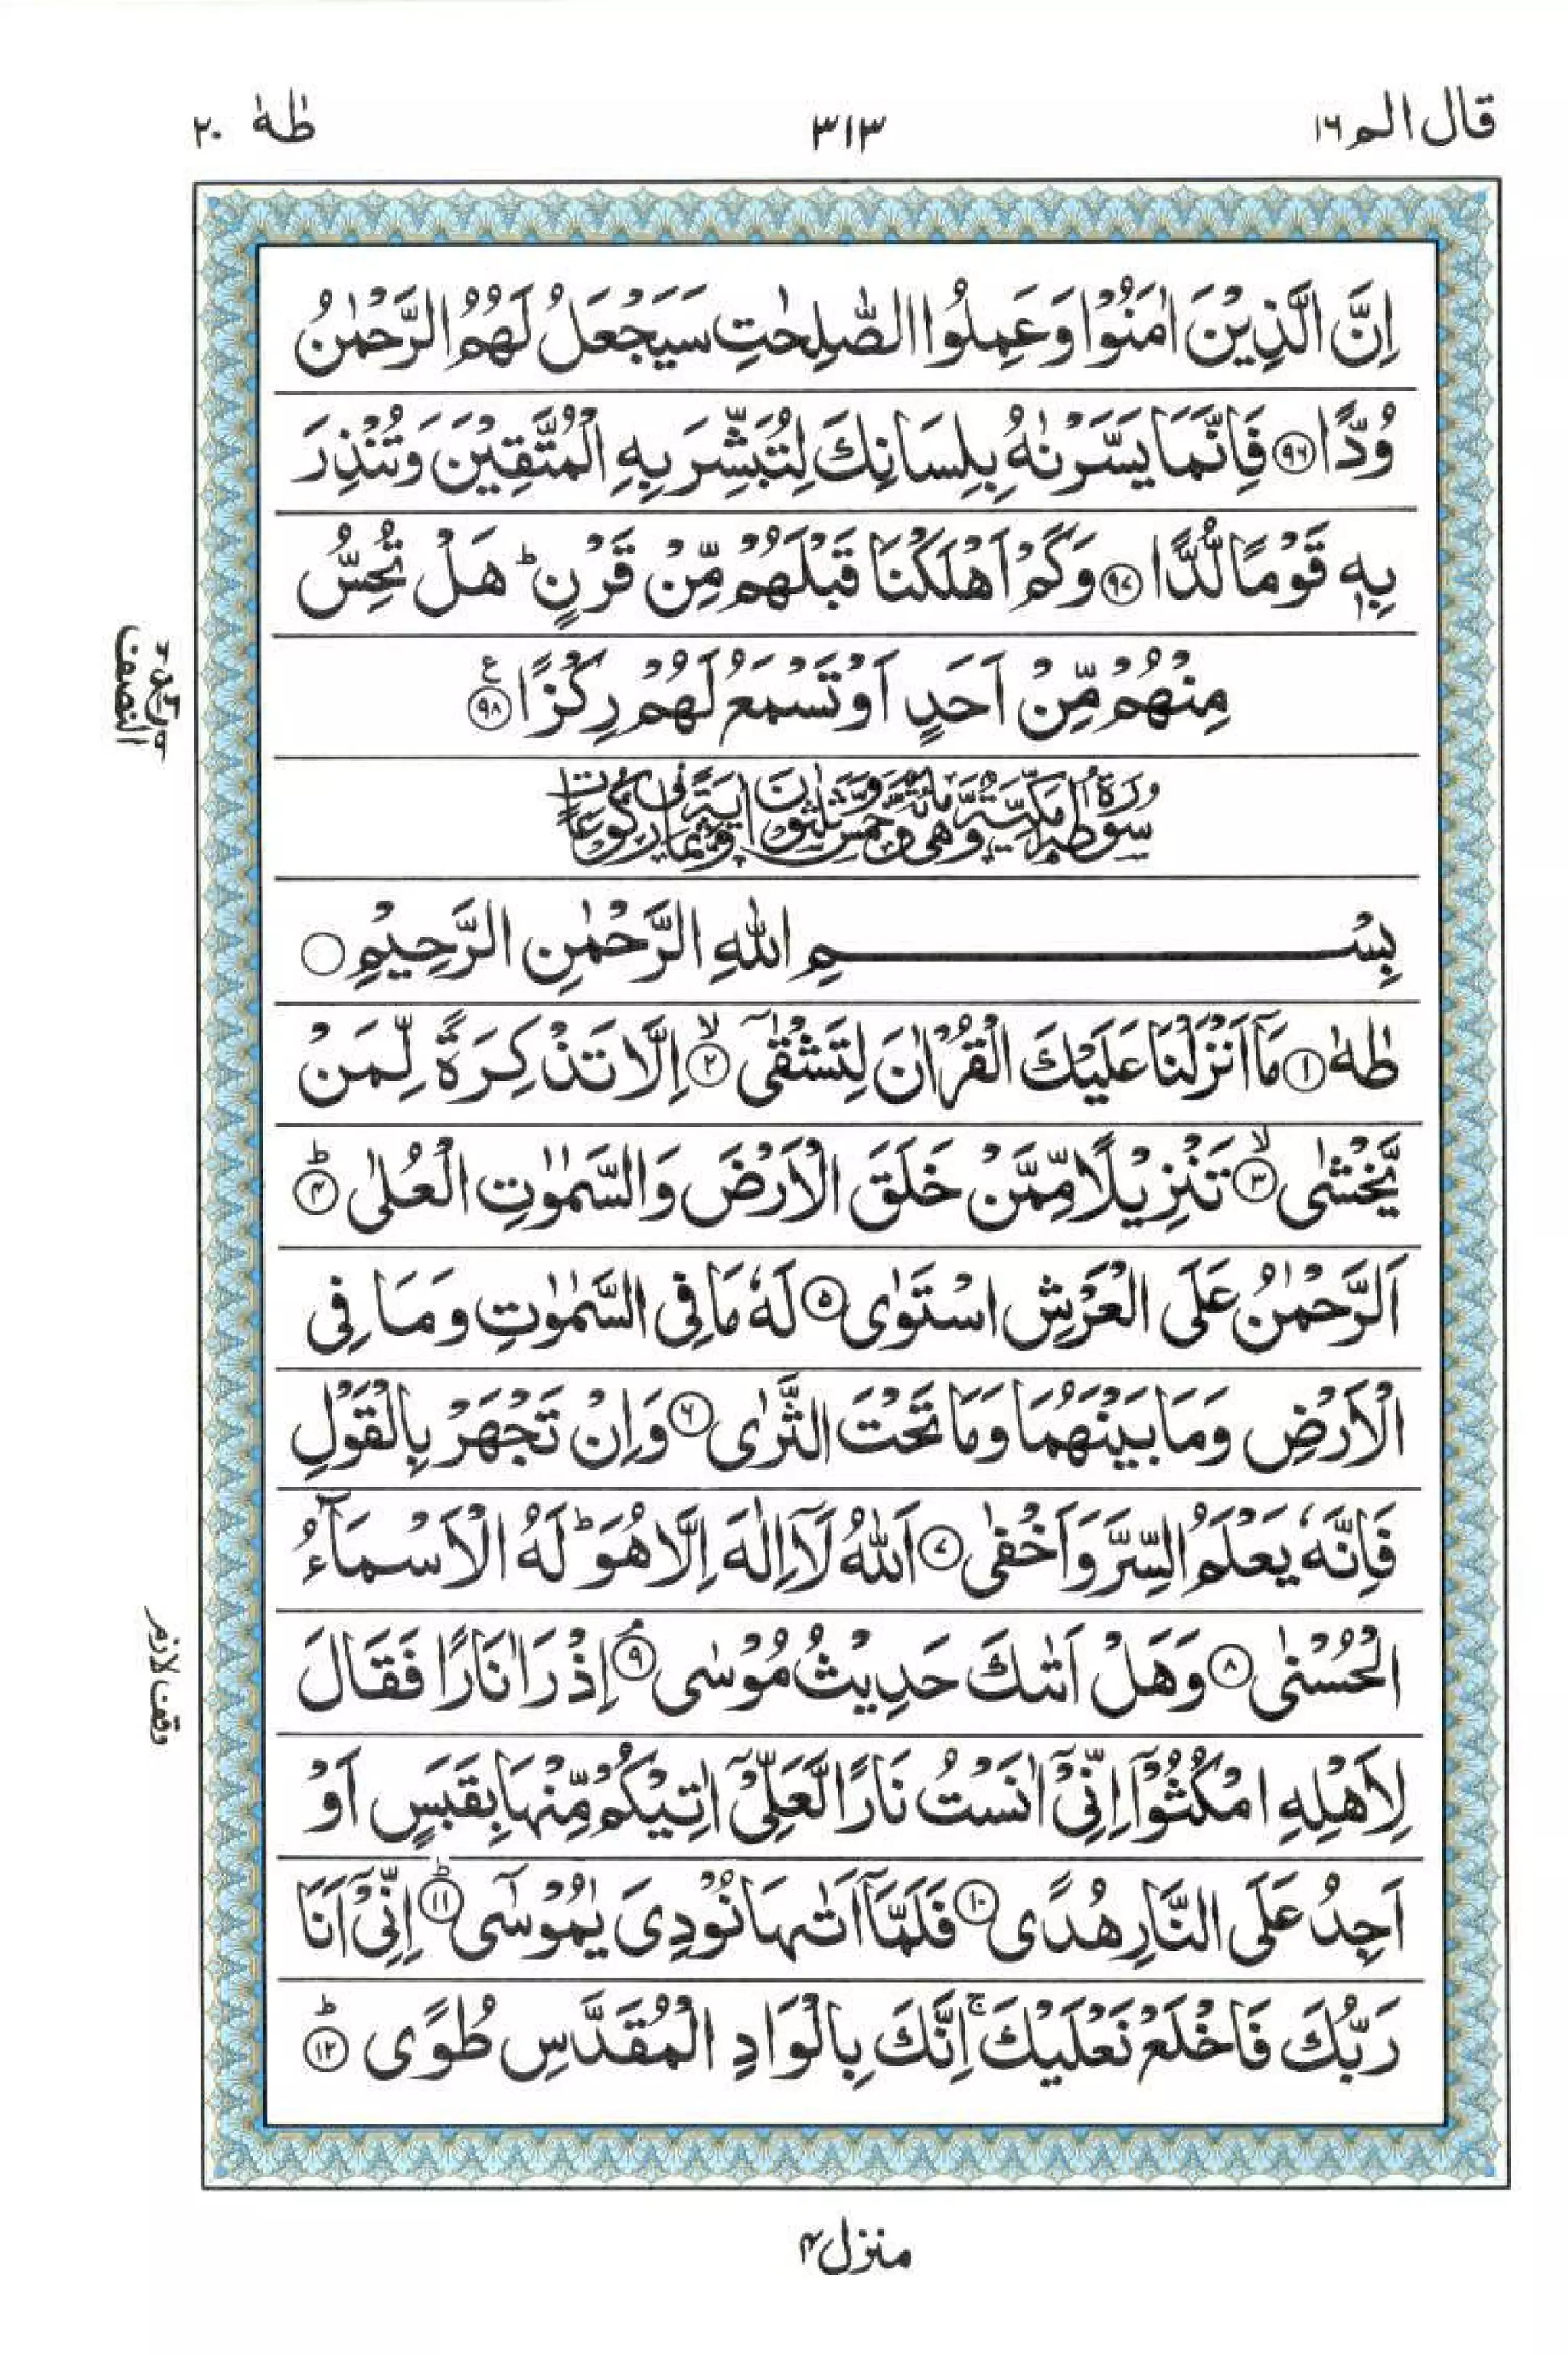 قال الم ١٦
٣١٣
طٰهٰ ٢٠
اِنَّ الَّذِيْنَ اٰمَنُوْا وَعَمِلُوا الصّٰلِحٰتِ سَيَجْعَلُ لَهُمُ الرَّحْمٰنُ
وُدًّا ﴿۹۶﴾ فَاِنَّمَا يَسَّرْنٰهُ بِلِسَانِكَ لِتُبَشِّرَ بِهِ الْمُتَّقِيْنَ وَتُنْذِرَ
بِهٖ قَوْمًا لُّدًّا ﴿۹۷﴾ وَكَمْ اَهْلَكْنَا قَبْلَهُمْ مِّنْ قَرْنٍ ؕ هَلْ تُحِسُّ
مِنْهُمْ مِّنْ اَحَدٍ اَوْ تَسْمَعُ لَهُمْ رِكْزًا ﴿۹۸﴾ ع
سُوْرَةُ طٰهٰ مَكِّيَّةٌ وَّهِيَ مِائَةٌ وَّخَمْسٌ وَّثَلٰثُوْنَ اٰيَةً وَّثَمَانِيْ رُكُوْعَاتٍ
بِسْمِ اللّٰهِ الرَّحْمٰنِ الرَّحِيْمِ
طٰهٰ ﴿۱﴾ مَاۤ اَنْزَلْنَا عَلَيْكَ الْقُرْاٰنَ لِتَشْقٰۤى ﴿۲﴾ۙ اِلَّا تَذْكِرَةً لِّمَنْ
يَّخْشٰى ﴿۳﴾ۙ تَنْزِيْلًا مِّمَّنْ خَلَقَ الْاَرْضَ وَالسَّمٰوٰتِ الْعُلٰى ﴿۴﴾ؕ
اَلرَّحْمٰنُ عَلَى الْعَرْشِ اسْتَوٰى ﴿۵﴾ لَهٗ مَا فِى السَّمٰوٰتِ وَمَا فِى
الْاَرْضِ وَمَا بَيْنَهُمَا وَمَا تَحْتَ الثَّرٰى ﴿۶﴾ وَاِنْ تَجْهَرْ بِالْقَوْلِ
فَاِنَّهٗ يَعْلَمُ السِّرَّ وَاَخْفٰى ﴿۷﴾ اَللّٰهُ لَاۤ اِلٰهَ اِلَّا هُوَ ؕ لَهُ الْاَسْمَآءُ
الْحُسْنٰى ﴿۸﴾ وَهَلْ اَتٰىكَ حَدِيْثُ مُوْسٰى ﴿۹﴾ۘ اِذْ رَاٰ نَارًا فَقَالَ
لِاَهْلِهِ امْكُثُوْۤا اِنِّىْۤ اٰنَسْتُ نَارًا لَّعَلِّىْۤ اٰتِيْكُمْ مِّنْهَا بِقَبَسٍ اَوْ
اَجِدُ عَلَى النَّارِ هُدًى ﴿۱۰﴾ فَلَمَّاۤ اَتٰىهَا نُوْدِىَ يٰمُوْسٰۤى ﴿۱۱﴾ؕ اِنِّىْۤ اَنَا
رَبُّكَ فَاخْلَعْ نَعْلَيْكَ ۚ اِنَّكَ بِالْوَادِ الْمُقَدَّسِ طُوًى ﴿۱۲﴾ؕ
النصف
وقف لازم
منزل ۴